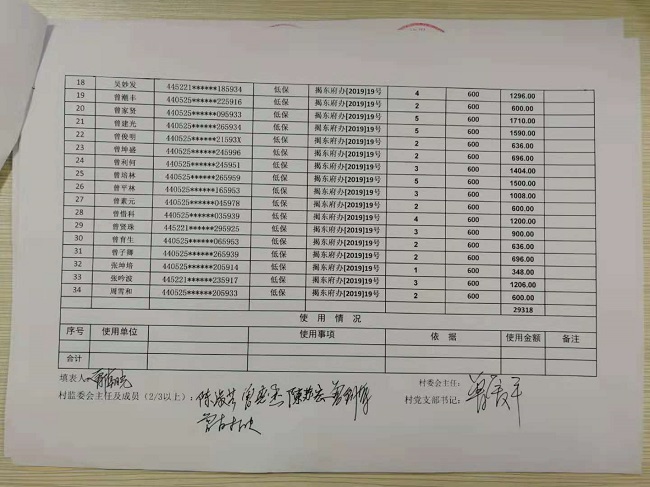 18 吴妙发 445221******185934 低保 揭东府办[2019]19号 4 600 1296.00
19 曾潮丰 440525******225916 低保 揭东府办[2019]19号 2 600 600.00
20 曾家贤 440525******095933 低保 揭东府办[2019]19号 5 600 1710.00
21 曾建光 440525******265934 低保 揭东府办[2019]19号 5 600 1590.00
22 曾俊明 440525******21593X 低保 揭东府办[2019]19号 2 600 636.00
23 曾坤盛 440525******245996 低保 揭东府办[2019]19号 2 600 696.00
24 曾利何 440525******245951 低保 揭东府办[2019]19号 3 600 1404.00
25 曾培林 440525******265959 低保 揭东府办[2019]19号 5 600 1500.00
26 曾平林 440525******165953 低保 揭东府办[2019]19号 3 600 1008.00
27 曾素元 440525******045978 低保 揭东府办[2019]19号 2 600 600.00
28 曾惜科 440525******035939 低保 揭东府办[2019]19号 4 600 1200.00
29 曾贤珠 445221******295925 低保 揭东府办[2019]19号 3 600 900.00
30 曾育生 440525******065953 低保 揭东府办[2019]19号 2 600 636.00
31 曾子卿 440525******265939 低保 揭东府办[2019]19号 2 600 696.00
32 张坤培 440525******205914 低保 揭东府办[2019]19号 1 600 348.00
33 张吟波 445221******235917 低保 揭东府办[2019]19号 3 600 1206.00
34 周雪和 440525******205933 低保 揭东府办[2019]19号 2 600 600.00
29318
使用情况
序号 使用单位 使用事项 依据 使用金额 备注
合计
填表人: 村委会主任:
村监委会主任及成员(2/3以上): 村党支部书记: